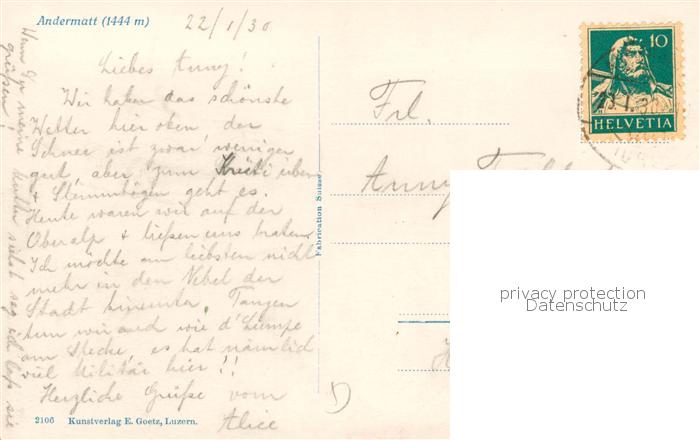 Andermatt (1444 m)
22/1/30
Liebes Anny!
Wir haben das schönste
Wetter hier oben, der
Schnee ist zwar weniger
gut, aber zum Kristi üben
+ Stemmbögen geht es.
Heute waren wir auf der
Oberalp + liessen uns braten
Ich möchte am liebsten nicht
mehr in den Nebel der
Stadt hinunter Tanzen
tun wir auch wie d'Lumpe
am Stecke, es hat nämlich
viel Militär hier!!
Herzliche Grüße vom
Alice
Wenn Du meine Mutter siehst sag ich lass sie
grüßen!
2106 Kunstverlag E. Goetz, Luzern.
Fabrication Suisse
Frl.
Anny
10
HELVETIA
privacy protection
Datenschutz